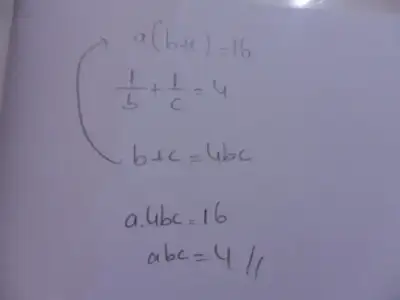 a(b+c)=16
1/b + 1/c = 4
b+c = 4bc
a.4bc = 16
abc = 4 //